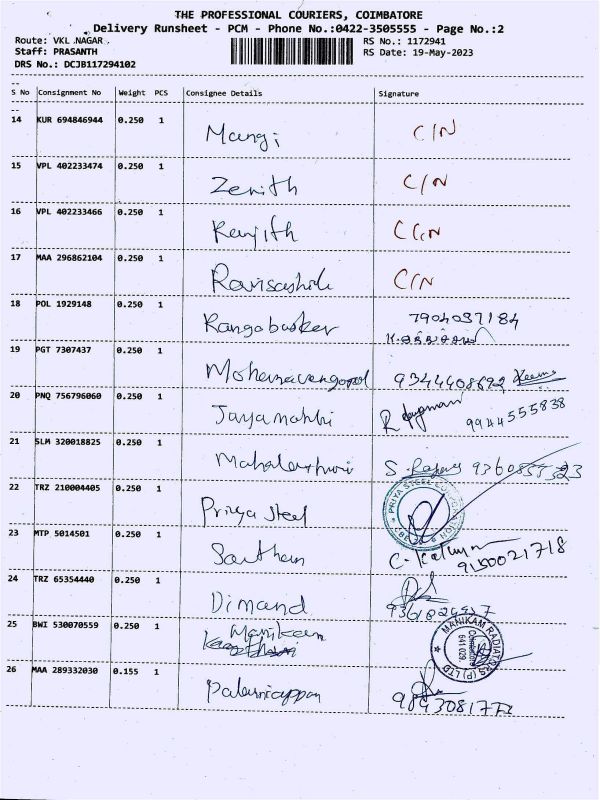 THE PROFESSIONAL COURIERS, COIMBATORE
Delivery Runsheet - PCM - Phone No.:0422-3505555 - Page No.:2
Route: VKL NAGAR RS No.: 1172941
Staff: PRASANTH RS Date: 19-May-2023
DRS No.: DCJB117294102
S No Consignment No Weight PCS Consignee Details Signature
14 KUR 694846944 0.250 1 Mangi C/N
15 VPL 402233474 0.250 1 Zenith C/N
16 VPL 402233466 0.250 1 Ranjith C/N
17 MAA 296862104 0.250 1 C/N
18 POL 1929148 0.250 1 Rangabasker 7904037184
19 PGT 7307437 0.250 1 9344408692
20 PNQ 756796060 0.250 1 R 9944555838
21 SLM 320018825 0.250 1 S.
22 TRZ 210004405 0.250 1 Priya Steel PRIYA STEEL
23 MTP 5014501 0.250 1 C. 9150021718
24 TRZ 65354440 0.250 1 Dimand
25 BWI 530070559 0.250 1 Manikam MANIKAM RADIATORS (P) LTD Coimbatore 641 029
26 MAA 289332030 0.155 1 Palaniappan